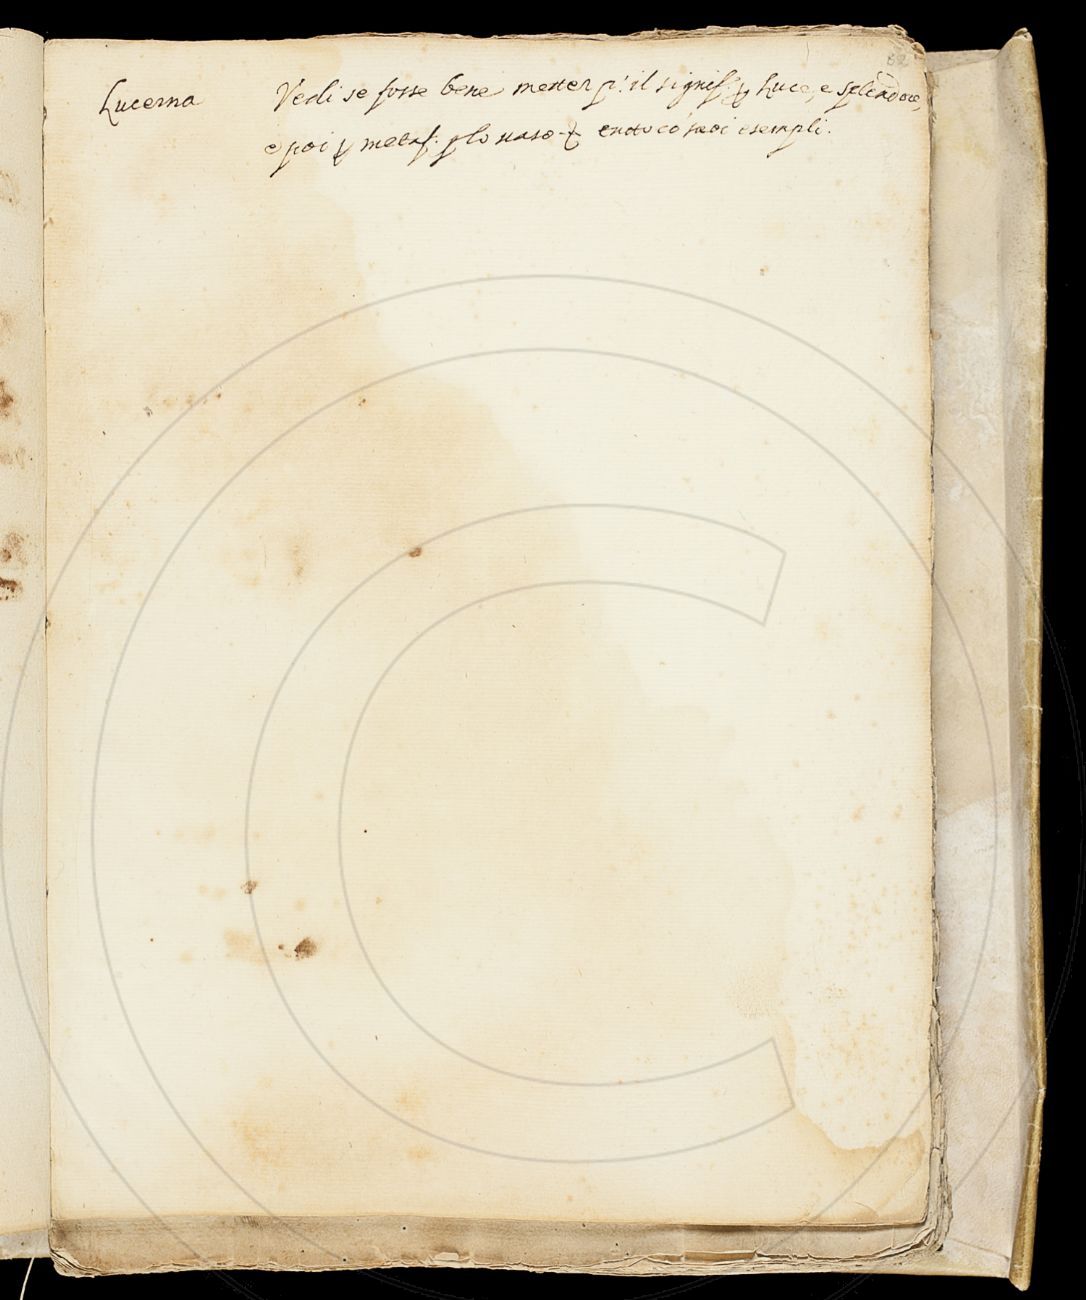 82
Lucerna Vedi se fosse bene metter p.º il signif. p Luce, e splēdore,
e poi p metaf. p lo vaso p tutto co' suoi esempli.